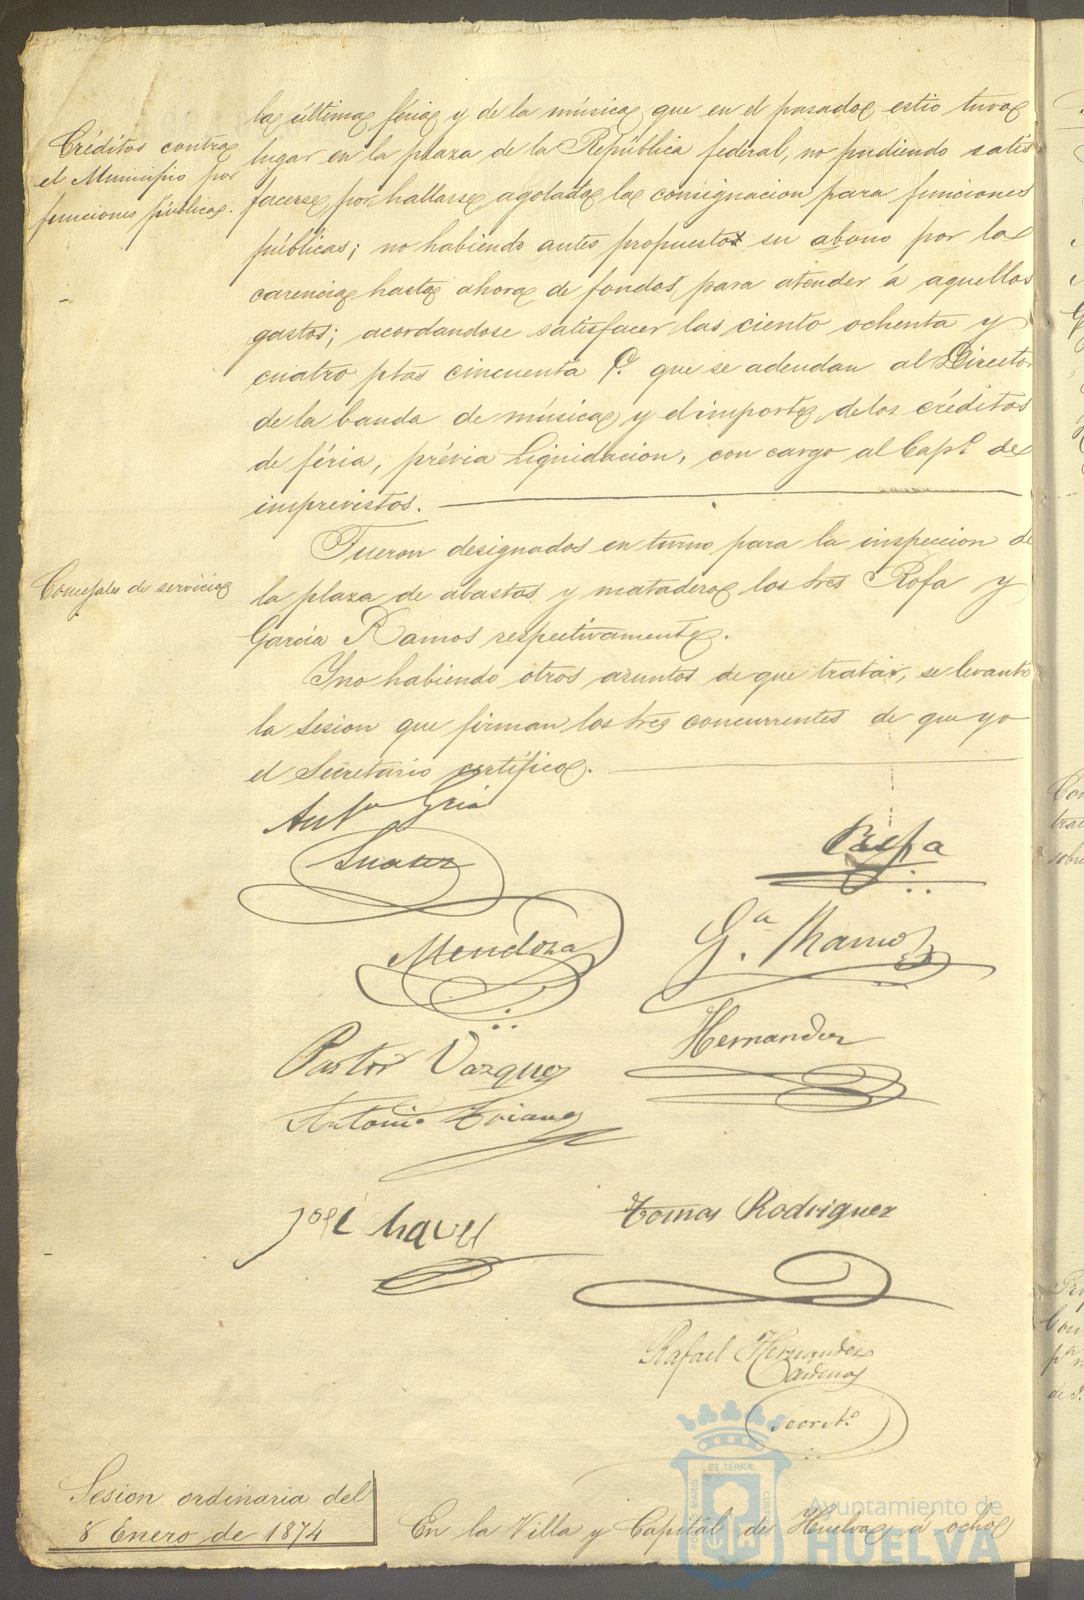 Créditos contra
el Municipio por
funciones públicas.
la última féria y de la música que en el pasado estio tuvo
lugar en la plaza de la República federal, no pudiendo satis
facerse por hallarse agotada la consignacion para funciones
públicas; no habiendo antes propuesto su abono por la
carencia hasta ahora de fondos para atender á aquellos
gastos; acordandose satisfacer las ciento ochenta y
cuatro ptas cincuenta C. que se adeudan al Director
de la banda de música y el importe de los créditos
de féria, prévia liquidacion, con cargo al Capl. de
imprevistos.
Concejales de servicio
Fueron designados en turno para la inspeccion de
la plaza de abastos y matadero los Sres Rofa y
Garcia Ramos respectivamente.
Y no habiendo otros asuntos de que tratar, se levantó
la sesion que firman los Sres concurrentes de que yo
el Secretario certifico.
Antº
Suarez
Rofa
Mendoza
Gª. Ramos
Pastor Vazquez
Hernandez
Antonio
José Chavez
Tomas Rodriguez
Rafael Hernandez
Cardenas
Secretº
Sesion ordinaria del
8 Enero de 1874
En la Villa y Capital de Huelva á ocho
Ayuntamiento de
HUELVA